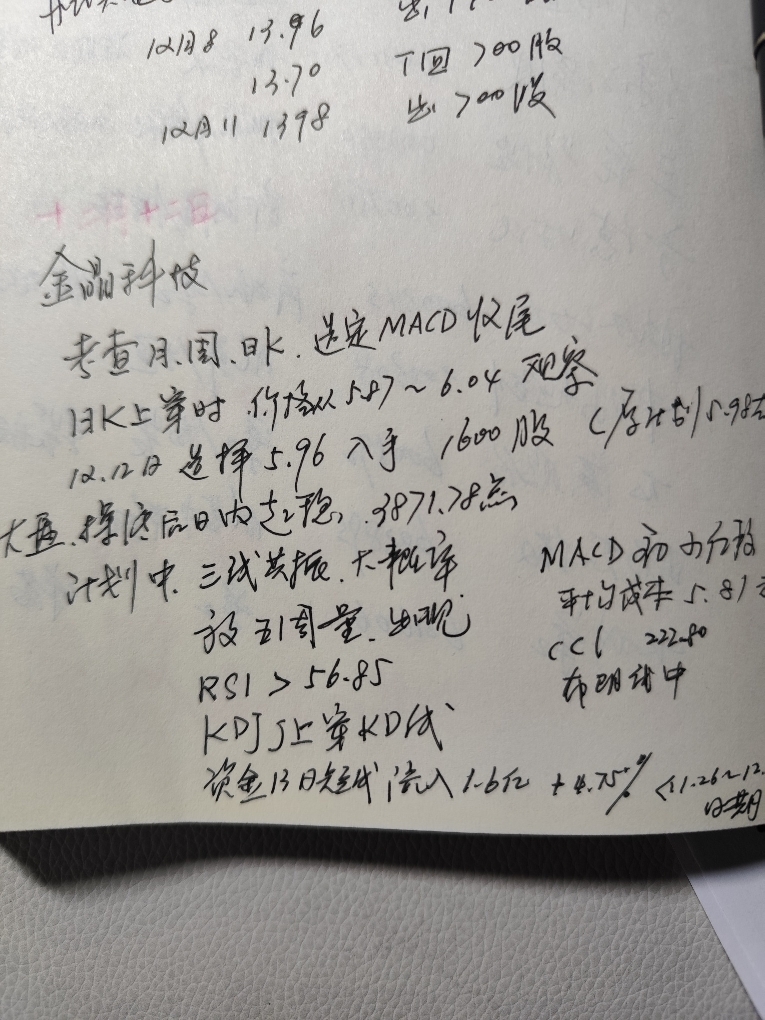 12月8 13.96 出
13.70 T回 700股
12月11 1398 出 700股
十二月十二日
金晶科技
考查月、周、日K、选定MACD收尾
日K上穿时 价格从5.87～6.04 观察
12.12日 选择 5.96 入手 1600股 (原计划5.98
大盘、操作后日内企稳、3871.78点
计划中、三线共振、大概率
放五周量、出现
RSI > 56.85
KDJ J上穿KD线
资金13日短线流入1.6亿 +4.75% <11.26～12.
日期
MACD
平均成本 5.81
CCI 222.80
布明线中